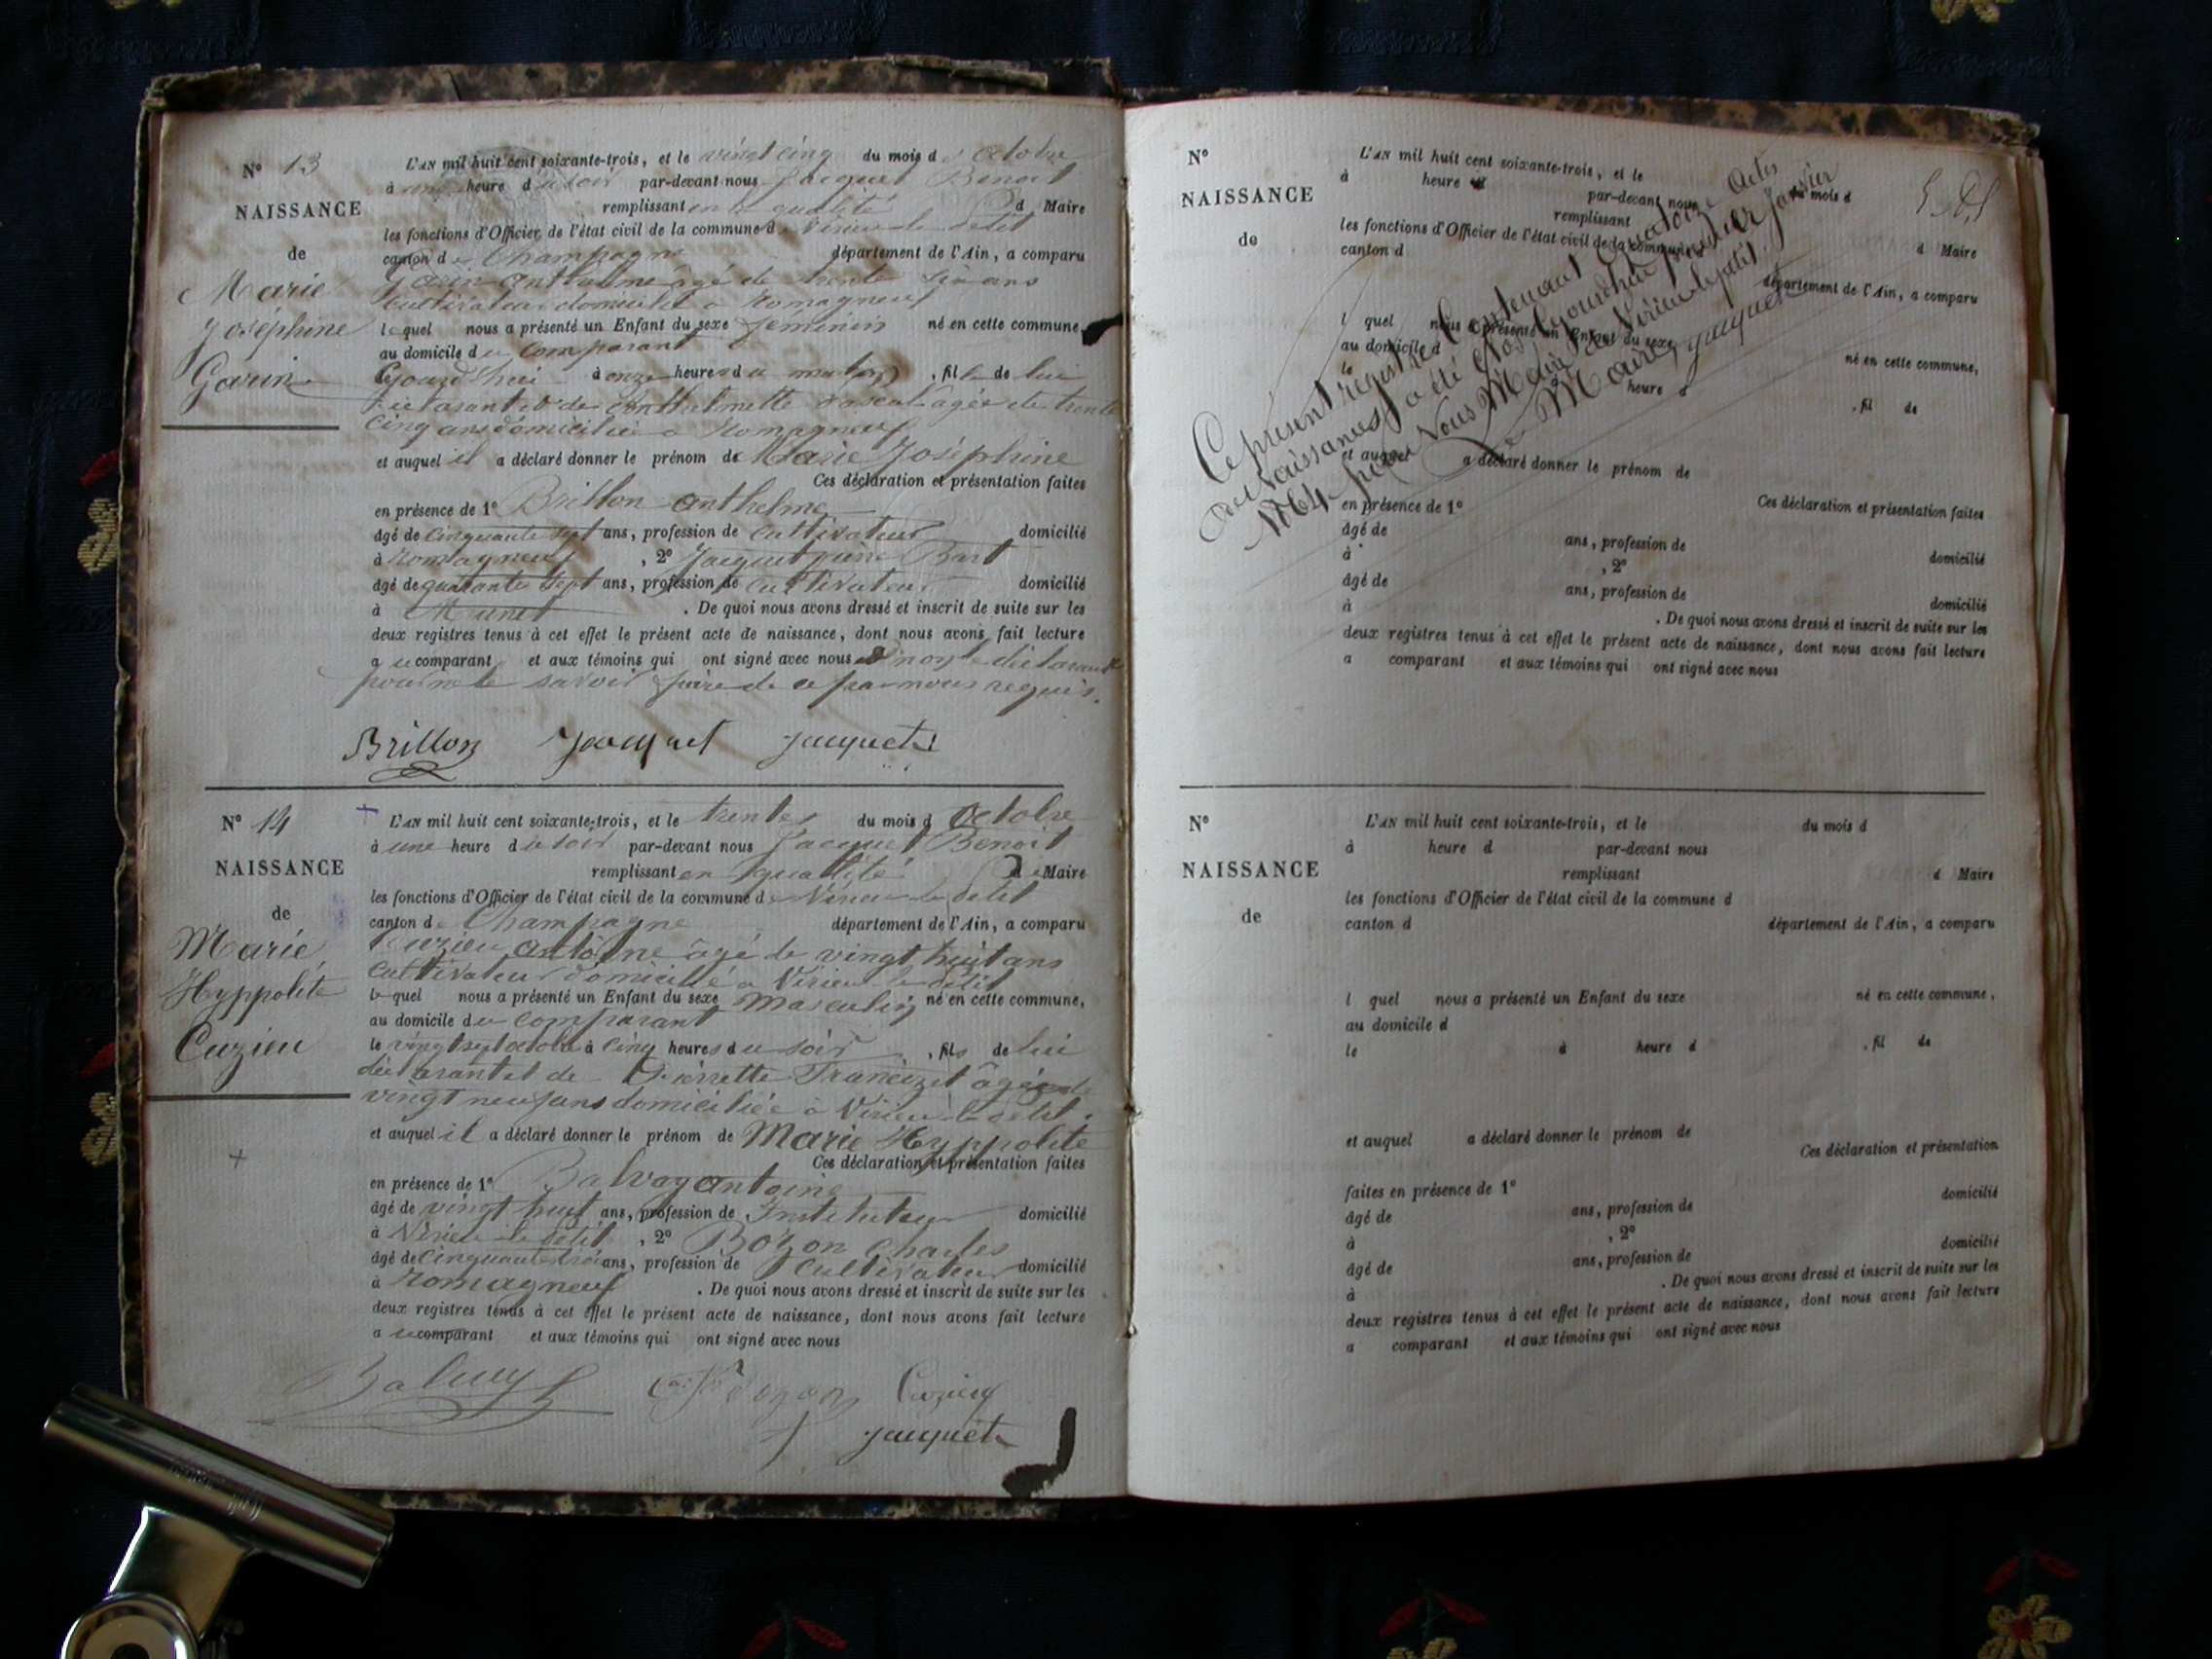 N° 13
NAISSANCE
de
Marie
Joséphine
Garin
L'AN mil huit cent soixante-trois, et le vingt cinq du mois d'octobre
à une heure du soir par-devant nous Jacquet Benoit
remplissant en qualité de Maire
les fonctions d'Officier de l'état civil de la commune de Virieu le petit
canton de Champagne département de l'Ain, a comparu
Garin Anthelme âgé de trente six ans
cultivateur domicilié à Romagneux
lequel nous a présenté un Enfant du sexe féminin né en cette commune,
au domicile du comparant
à onze heures du matin, fille de lui
déclarant et de anthelmette âgée de trente
cinq ans domiciliée à Romagneux
et auquel il a déclaré donner le prénom de Marie Joséphine
Ces déclaration et présentation faites
en présence de 1° Brillon anthelme
âgé de cinquante sept ans, profession de cultivateur domicilié
à Romagneux, 2° Jacquet pierre
âgé de quarante sept ans, profession de cultivateur domicilié
à Munet. De quoi nous avons dressé et inscrit de suite sur les
deux registres tenus à cet effet le présent acte de naissance, dont nous avons fait lecture
au comparant et aux témoins qui ont signé avec nous non le déclarant
pour ne le savoir faire de ce par nous requis.
Brillon Jacquet Jacquet
N° 14
NAISSANCE
de
Marie
Hyppolite
Cuzieu
L'AN mil huit cent soixante-trois, et le trente du mois d octobre
à une heure du soir par-devant nous Jacquet Benoit
remplissant en qualité de Maire
les fonctions d'Officier de l'état civil de la commune de Virieu le petit
canton de Champagne département de l'Ain, a comparu
Cuzieu antoine âgé de vingt huit ans
cultivateur domicilié à Virieu le petit
lequel nous a présenté un Enfant du sexe masculin né en cette commune,
au domicile du comparant
le vingt sept octobre à cinq heures du soir, fils de lui
déclarant et de Pierrette Francizet âgée de
vingt neuf ans domiciliée à Virieu le petit.
et auquel il a déclaré donner le prénom de Marie Hyppolite
Ces déclaration et présentation faites
en présence de 1° Balvay antoine
âgé de vingt huit ans, profession de Instituteur domicilié
à Virieu le petit, 2° Bozon charles
âgé de cinquante trois ans, profession de cultivateur domicilié
à Romagneux. De quoi nous avons dressé et inscrit de suite sur les
deux registres tenus à cet effet le présent acte de naissance, dont nous avons fait lecture
au comparant et aux témoins qui ont signé avec nous
Balvay Bozon Cuzieu
Jacquet
N°
NAISSANCE
de
L'AN mil huit cent soixante-trois, et le du mois d
à heure d par-devant nous
remplissant d Maire
les fonctions d'Officier de l'état civil de la commune
canton d département de l'Ain, a comparu
l quel nous a présenté un Enfant du sexe né en cette commune,
au domicile d
le heure d , fil de
et auquel a déclaré donner le prénom de
Ces déclaration et présentation faites
en présence de 1°
âgé de ans, profession de domicilié
à , 2°
âgé de ans, profession de domicilié
à . De quoi nous avons dressé et inscrit de suite sur les
deux registres tenus à cet effet le présent acte de naissance, dont nous avons fait lecture
a comparant et aux témoins qui ont signé avec nous
Ce présent registre Contenant quatorze Actes
de Naissances, a été clos aujourd'hui premier Janvier
1864 par Nous Maire de Virieu le petit.
Le Maire, Jacquet
N°
NAISSANCE
de
L'AN mil huit cent soixante-trois, et le du mois d
à heure d par-devant nous
remplissant d Maire
les fonctions d'Officier de l'état civil de la commune d
canton d département de l'Ain, a comparu
l quel nous a présenté un Enfant du sexe né en cette commune,
au domicile d
le à heure d , fil de
et auquel a déclaré donner le prénom de
Ces déclaration et présentation
faites en présence de 1°
âgé de ans, profession de domicilié
à , 2°
âgé de ans, profession de domicilié
à . De quoi nous avons dressé et inscrit de suite sur les
deux registres tenus à cet effet le présent acte de naissance, dont nous avons fait lecture
a comparant et aux témoins qui ont signé avec nous